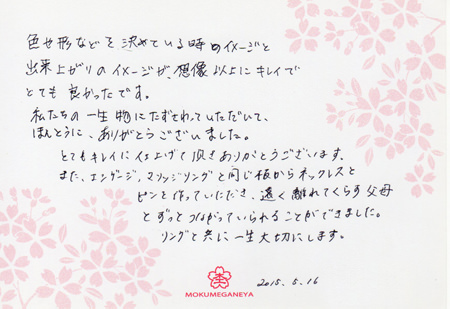 色や形などを決めている時のイメージと
出来上がりのイメージが、想像以上にキレイで
とても良かったです。
私たちの一生物にたずさわっていただいて、
ほんとうに、ありがとうございました。
とてもキレイに仕上げて頂きありがとうございます。
また、エンゲージ、マリッジリングと同じ板からネックレスと
ピンを作っていただき、遠く離れてくらす父母
とずっとつながっていられることができました。
リングと共に一生大切にします。
2015.5.16
MOKUMEGANEYA